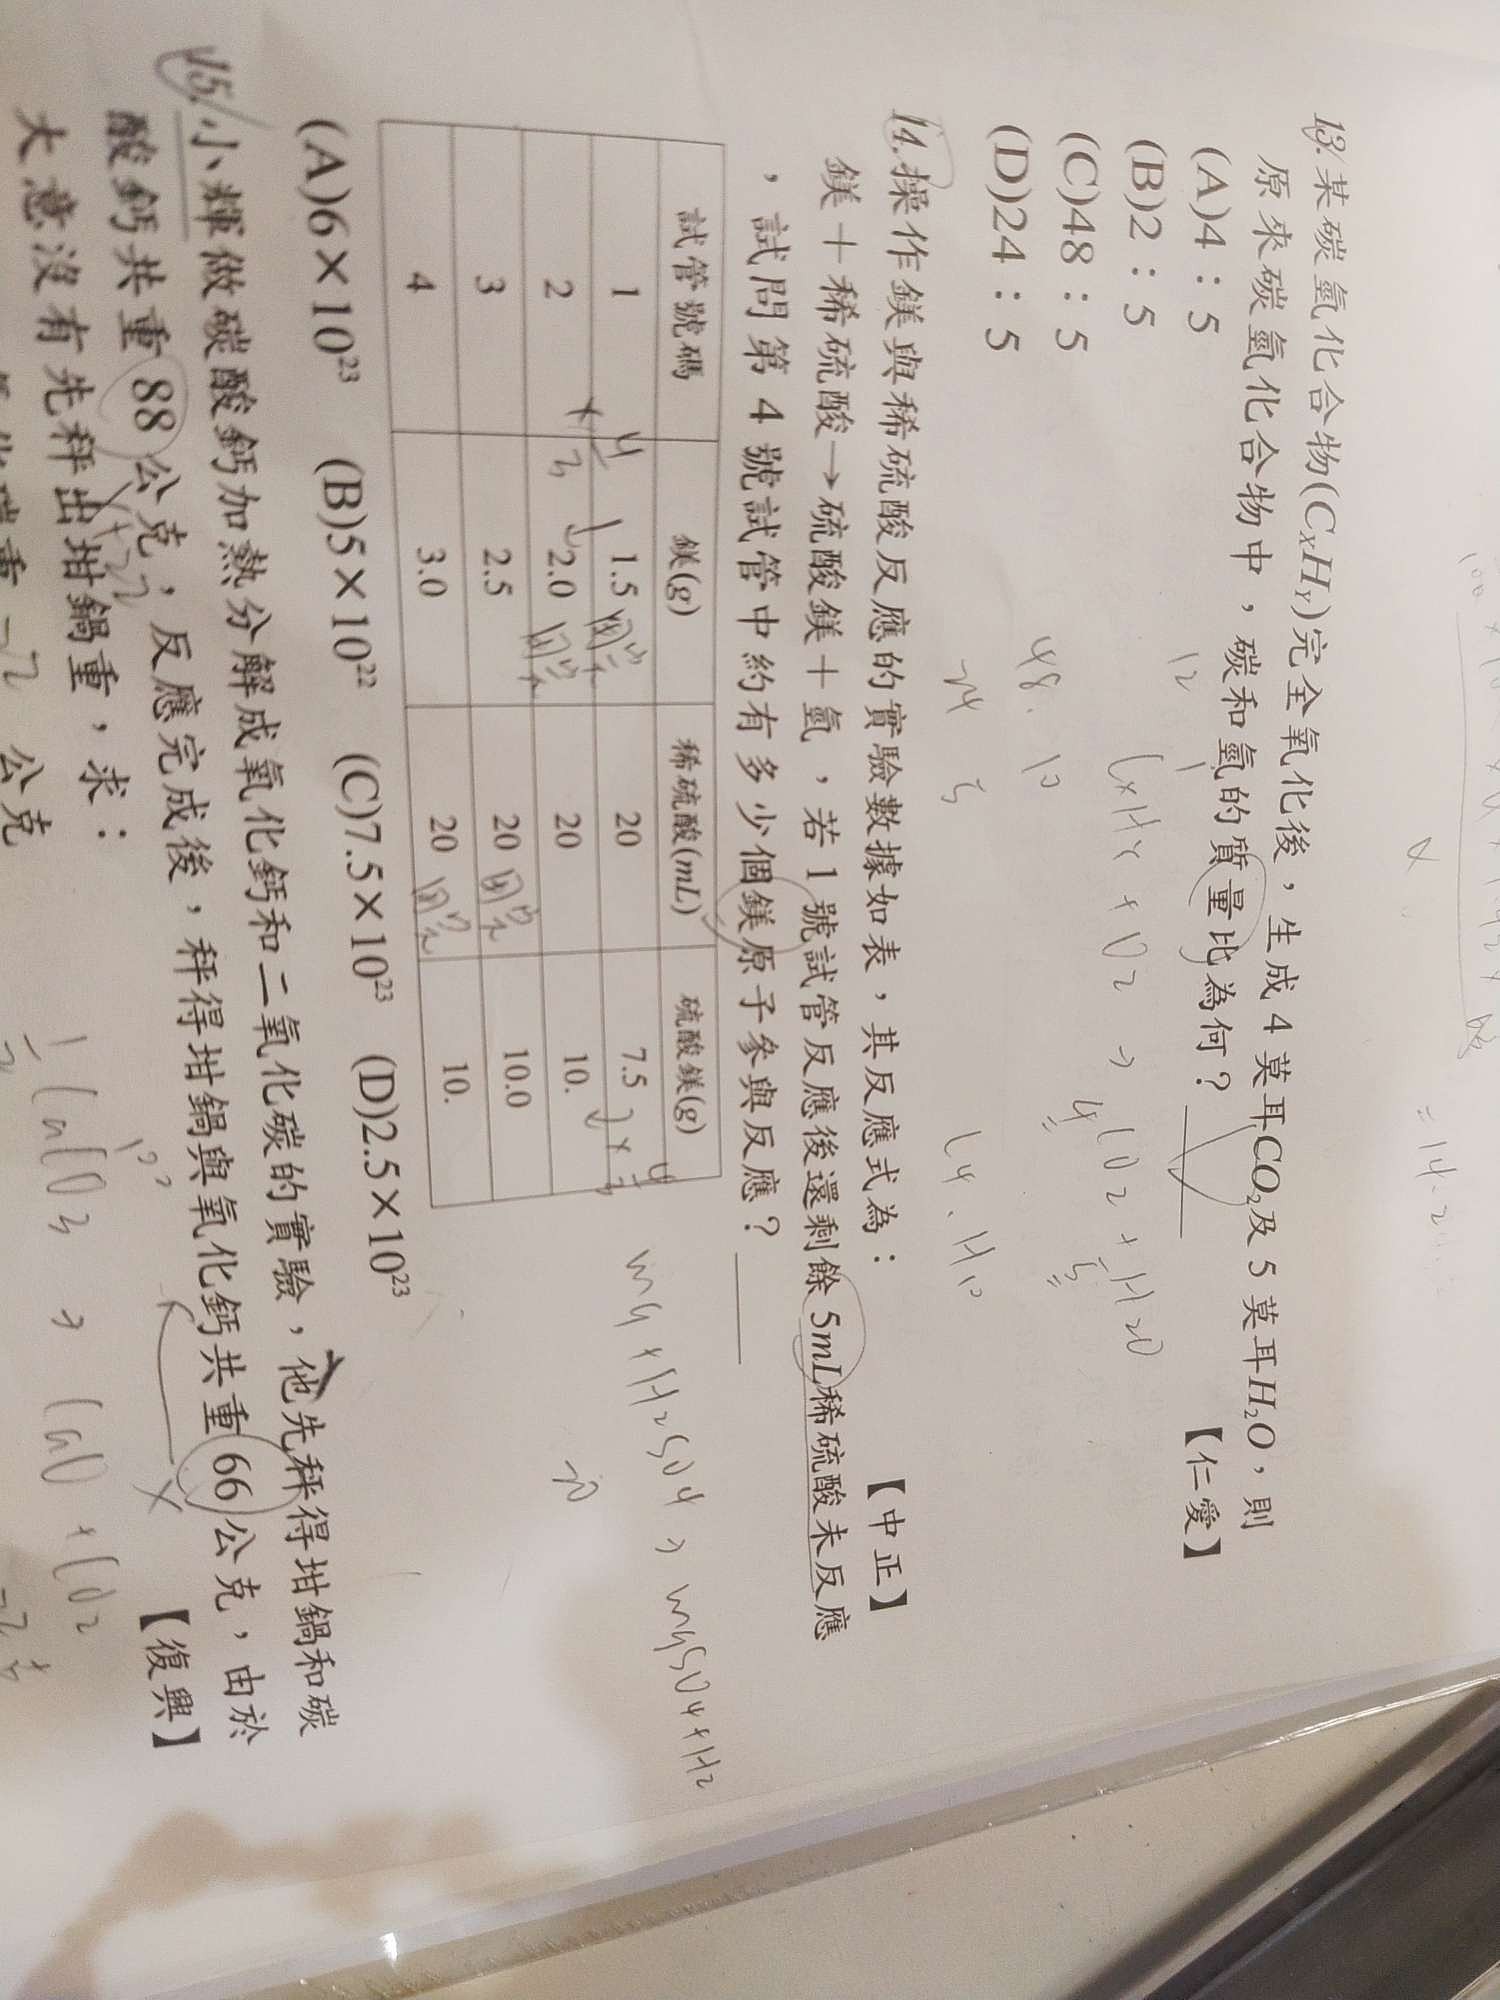 13.某碳氫化合物(CXHY)完全氧化後，生成 4 莫耳CO2及 5 莫耳H2O，則
原來碳氫化合物中，碳和氫的質量比為何？
【仁愛】
(A)4：5
(B)2：5
(C)48：5
(D)24：5
12 1
CxHy + O2 → 4CO2 + H2O
5
48.10
24 5
C4.H10
14.操作鎂與稀硫酸反應的實驗數據如表，其反應式為：
【中正】
鎂＋稀硫酸→硫酸鎂＋氫，若 1 號試管反應後還剩餘 5mL稀硫酸未反應
，試問第 4 號試管中約有多少個鎂原子參與反應？
試管號碼 鎂(g) 稀硫酸(mL) 硫酸鎂(g)
1 1.5 用完 20 7.5
2 2.0 用完 20 10.
3 2.5 20 用完 10.0
4 3.0 20 用完 10.
Mg + H2SO4 → MgSO4 + H2
20
(A)6×10²³ (B)5×10²² (C)7.5×10²³ (D)2.5×10²³
15.小輝做碳酸鈣加熱分解成氧化鈣和二氧化碳的實驗，他先秤得坩鍋和碳
酸鈣共重 88 公克，反應完成後，秤得坩鍋與氧化鈣共重 66 公克，由於
大意沒有先秤出坩鍋重，求：
【復興】
x+22
x
CaCO3 → CaO + CO2
公克